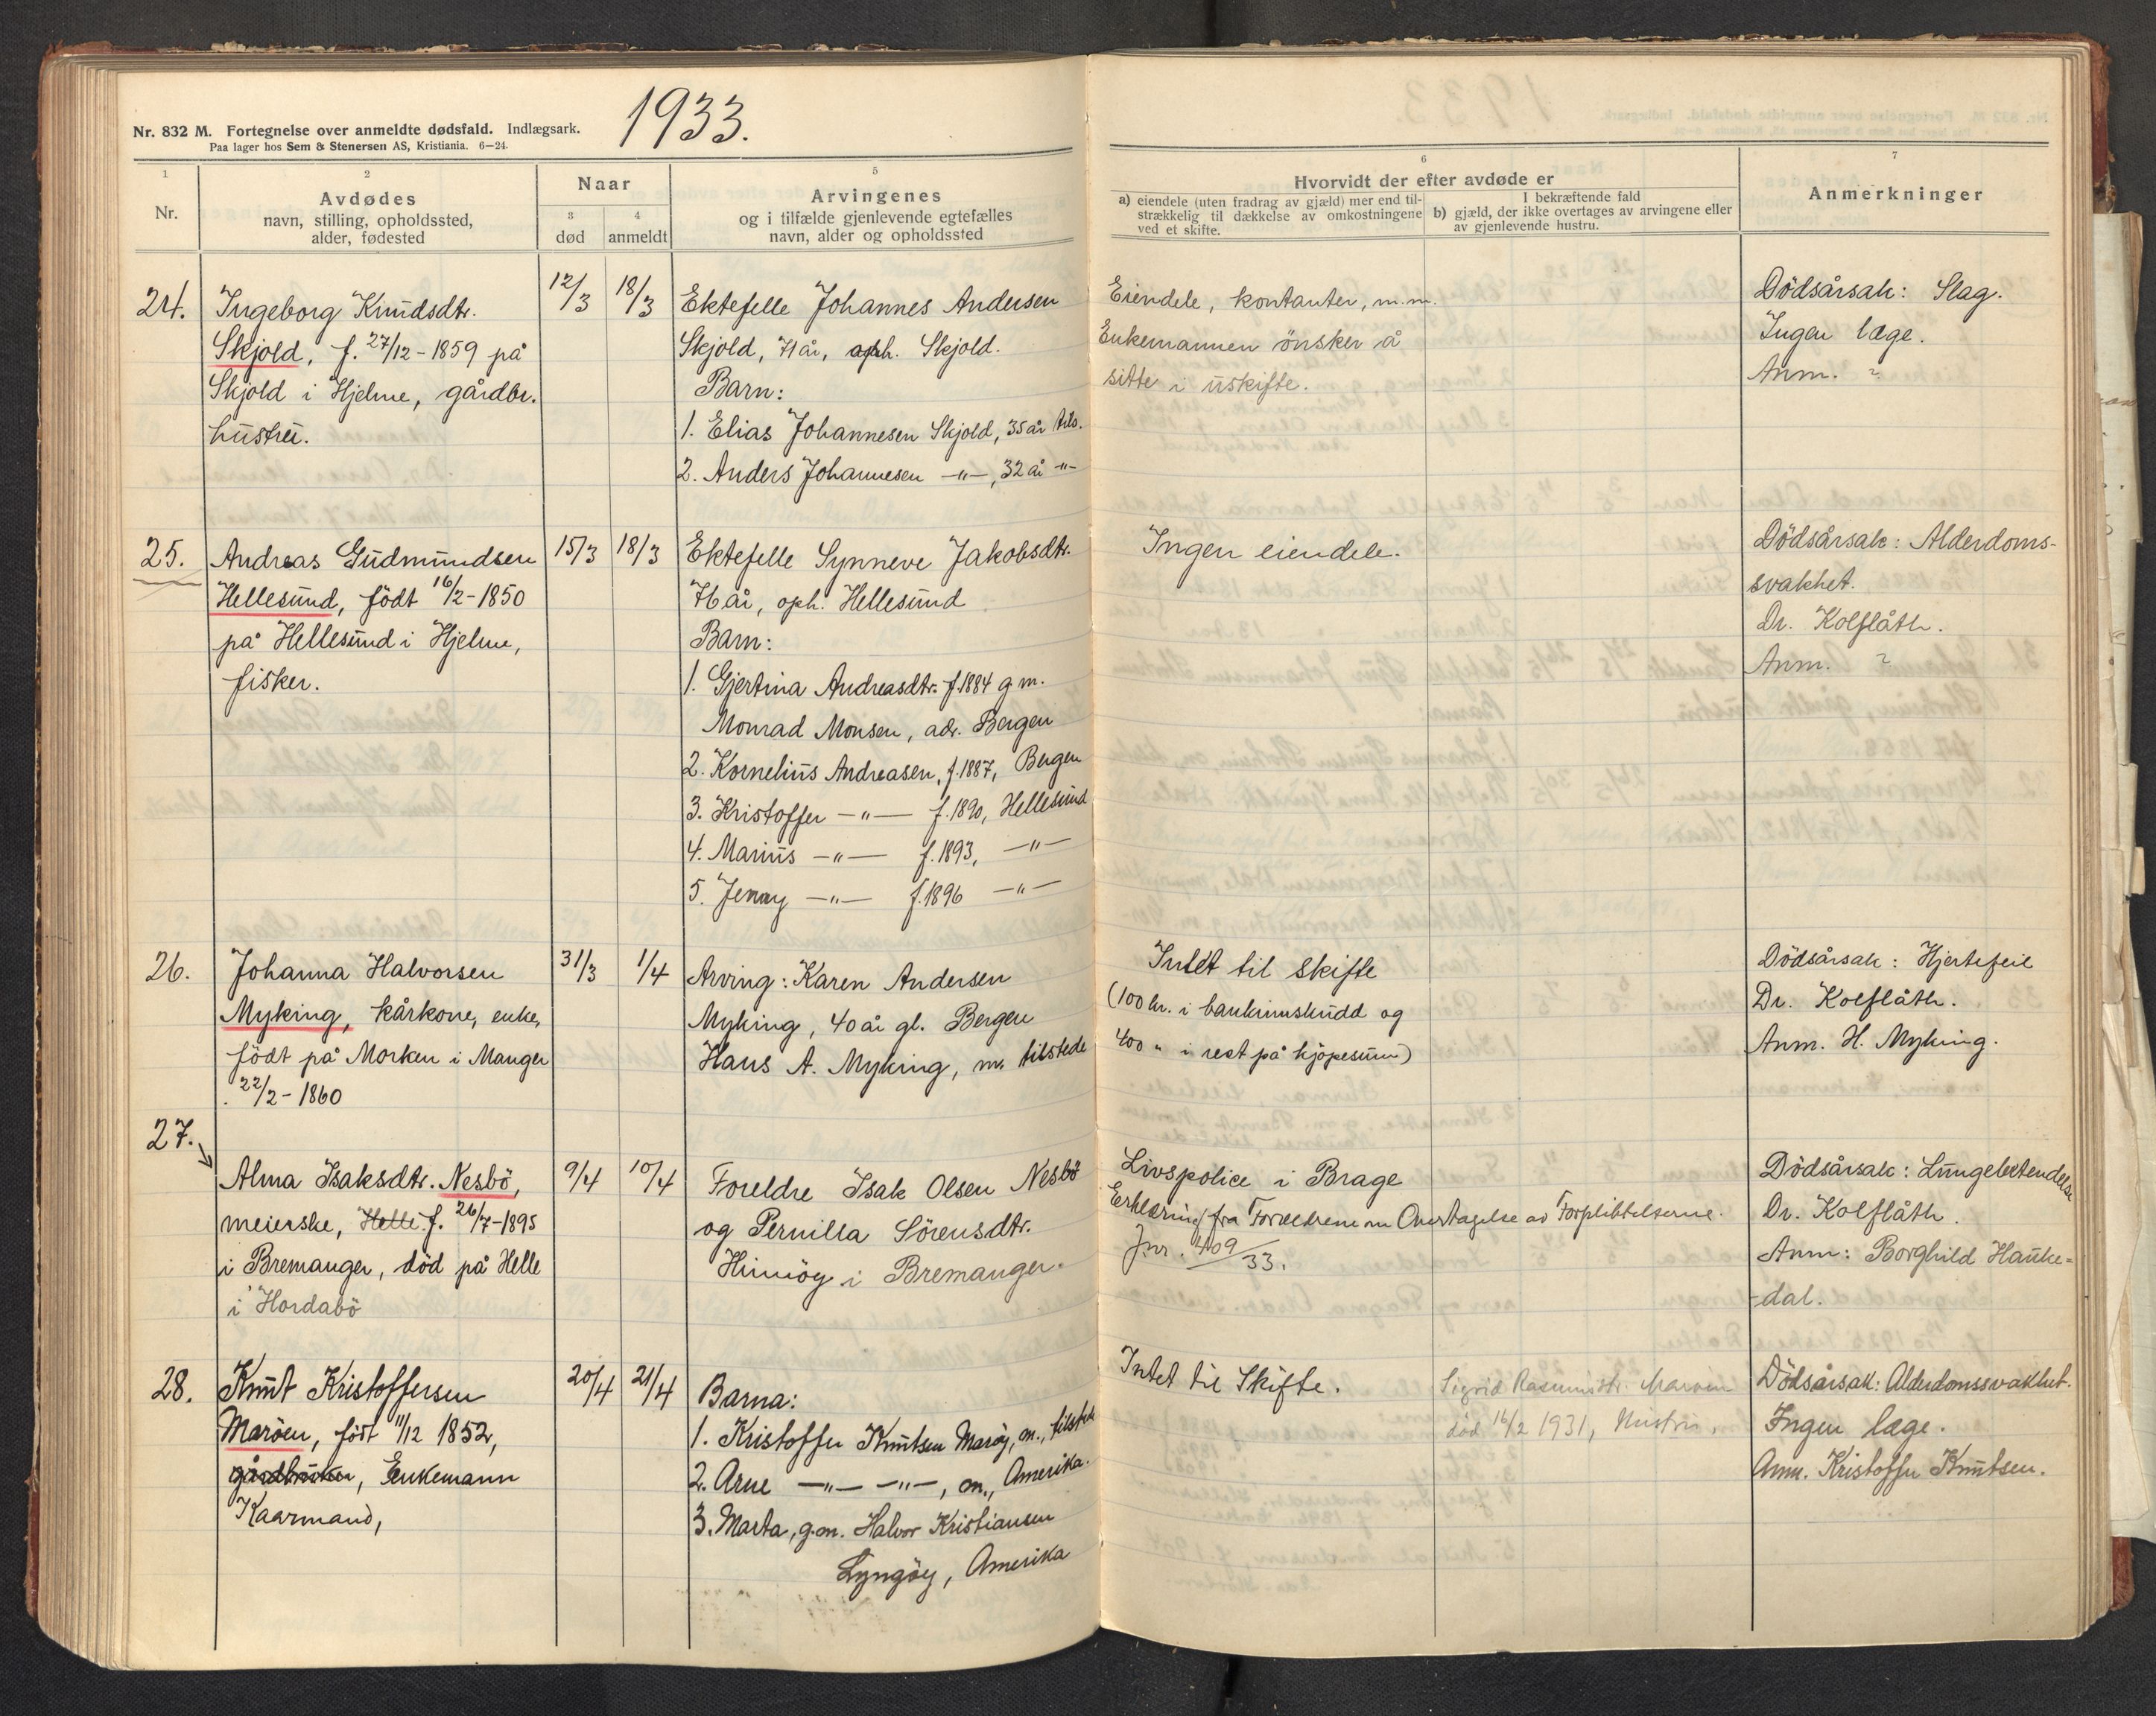 1933.
Nr. 832 M. Fortegnelse over anmeldte dødsfald. Indlægsark.
Paa lager hos Sem & Stenersen AS, Kristiania. 6—24.
1
Nr.
2
Avdødes
navn, stilling, opholdssted,
alder, fødested
Naar
3
død
4
anmeldt
5
Arvingenes
og i tilfælde gjenlevende egtefælles
navn, alder og opholdssted
6
Hvorvidt der efter avdøde er
a) eiendele (uten fradrag av gjæld) mer end til-
strækkelig til dækkelse av omkostningene
ved et skifte.
I bekræftende fald
b) gjæld, der ikke overtages av arvingene eller
av gjenlevende hustru.
7
Anmerkninger
24.
Ingeborg Knudsdtr.
Skjold, f. 27/12 - 1859 på
Skjold i Hjelme, gårdbr.
hustru.
12/3
18/3
Ektefelle Johannes Andersen
Skjold, 71 år, oph. Skjold.
Barn:
1. Elias Johannesen Skjold, 35 år
2. Anders Johannesen —"—, 32 år -"-
Eiendele, kontanter, m.m.
Enkemannen önsker å
sitte i uskifte.
Dödsårsak: Slag.
Ingen læge.
Anm. ?
25.
Andreas Gudmundsen
Hellesund, födt 16/2 - 1850
på Hellesund i Hjelme,
fisker.
15/3
18/3
Ektefelle Synneve Jakobsdtr.
76 år, oph. Hellesund
Barn:
1. Gjertina Andreasdtr. f. 1884 g m.
Monrad Monsen, adr. Bergen
2. Kornelius Andreasen, f. 1887, Bergen
3. Kristoffer —"— f. 1890, Hellesund
4. Marius —"— f. 1893, —"—
5. Jenny —"— f. 1896 —"—
Ingen eiendele.
Dödsårsak: Alderdoms-
svakhet.
Dr. Kolflåth.
Anm. ?
26.
Johanna Halvorsen
Myking, kårkone, enke,
födt på Morken i Manger
22/2 - 1860
31/3
1/4
Arving: Karen Andersen
Myking, 40 år gl. Bergen
Hans A. Myking, m. tilstede
Intet til skifte
(100 kr. i bankinnskudd og
400 " i rest på kjöpesum)
Dödsårsak: Hjertefeil
Dr. Kolflåth.
Anm. H. Myking.
27.
Alma Isaksdtr. Nesbö,
meierske, Helle f. 26/7 - 1895
i Bremanger, död på Helle
i Hordabö
9/4
10/4
Foreldre Isak Olsen Nesbö
og Pernilla Sörensdtr.
Hunnöy i Bremanger.
Livspolice i Brage
Erklæring fra Forældrene om Overtagelse av Forpligtelserne.
Jnr. 409/33.
Dödsårsak: Lungebetendelse
Dr. Kolflåth.
Anm: Borghild Hauke=
-dal.
28.
Knut Kristoffersen
Maröen, födt 11/12 1852,
gårdbruker, Enkemann
Kaarmand,
20/4
21/4
Barna:
1. Kristoffer Knutsen Maröy, m., tilstede
2. Arne —"— —"—, m., Amerika.
3. Marta, g.m. Halvor Kristiansen
Lyngöy, Amerika
Intet til Skifte.
Sigrid Rasmusdtr. Maröen
död 16/2 1931, Hustru.
Dödsårsak: Alderdomssvakhet.
Ingen læge.
Anm. Kristoffer Knutsen.